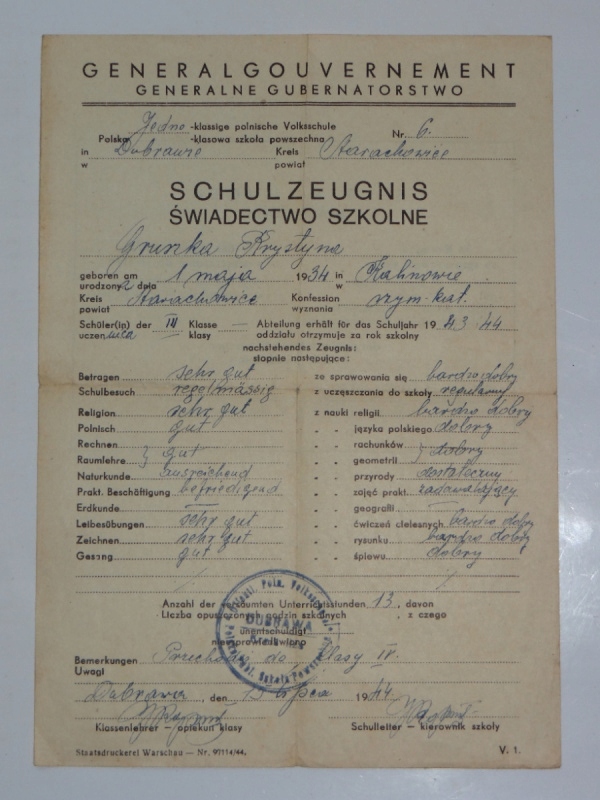 GENERALGOUVERNEMENT
GENERALNE GUBERNATORSTWO
Jedno-klassige polnische Volksschule Nr. 6.
Polska -klasowa szkoła powszechna
in Dubrawie Kreis Starachowice
w powiat
SCHULZEUGNIS
ŚWIADECTWO SZKOLNE
Grunka Krystyna
geboren am 1 maja 1934 in Kalinowie
urodzony dnia w
Kreis Starachowice Konfession rzym. kat.
powiat wyznania
Schüler(in) der III Klasse — Abteilung erhält für das Schuljahr 1943-44
uczennica klasy oddziału otrzymuje za rok szkolny
nachstehendes Zeugnis:
stopnie następujące:
Betragen sehr gut ze sprawowania się bardzo dobry
Schulbesuch regelmässig z uczęszczania do szkoły regularny
Religion sehr gut z nauki religii bardzo dobry
Polnisch gut " " języka polskiego dobry
Rechnen " " rachunków
Raumlehre } gut " " geometrii } dobry
Naturkunde ausreichend " " przyrody dostateczny
Prakt. Beschäftigung befriedigend " " zajęć prakt. zadawalający
Erdkunde — " " geografii —
Leibesübungen sehr gut " " ćwiczeń cielesnych bardzo dobry
Zeichnen sehr gut " " rysunku bardzo dobry
Gesang gut " " śpiewu dobry
Anzahl der versäumten Unterrichtsstunden 13, davon
Liczba opuszczonych godzin szkolnych , z czego
DUBRAWA
unentschuldigt
nieusprawiedliwiono
Bemerkungen Przechodzi do klasy IV.
Uwagi
Dubrawa, den 15 lipca 1944.
Klassenlehrer — opiekun klasy Schulleiter — kierownik szkoły
Staatsdruckerei Warschau — Nr. 97114/44. V. 1.